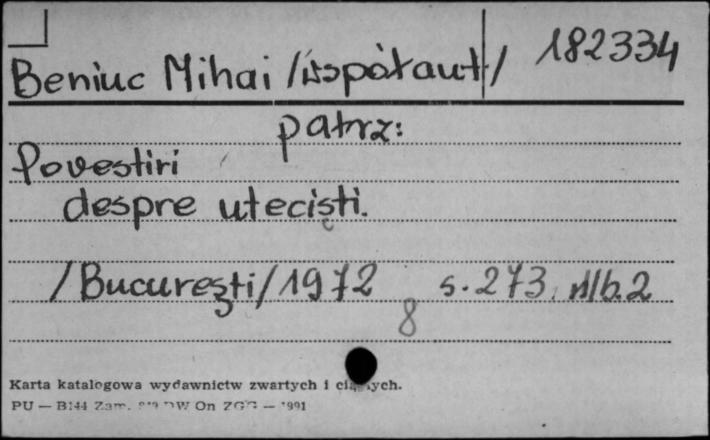 Beniuc Mihai /współaut/ 182334
patrz:
Povestiri
despre utecişti.
/Bucureşti/1972 s. 273, nlb. 2
8
Karta katalogowa wydawnictw zwartych i ciągłych.
PU — B144 Zam. DW On ZGG —